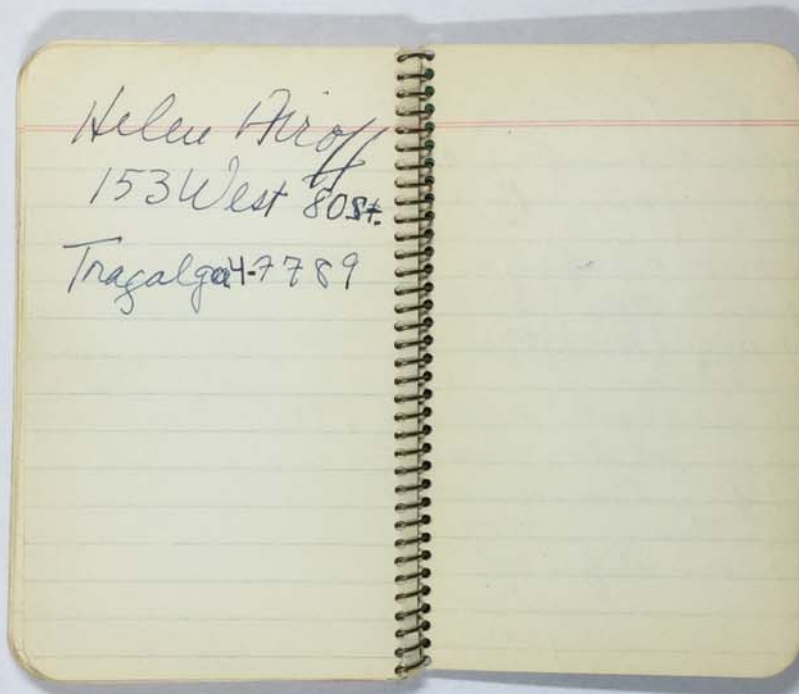 Helen Airoff
153 West 80 St.
Tragalga 4-7789